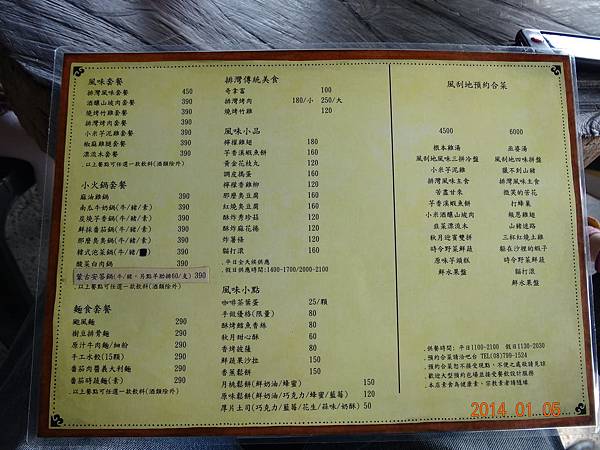 風味套餐
排灣風味套餐 450
酒釀山坡肉套餐 390
燒烤竹雞套餐 390
排灣烤肉套餐 390
小米芋泥雞套餐 390
椒麻雞腿套餐 390
漂流木套餐 390
.以上餐點可任選一款飲料(酒類除外)
小火鍋套餐
麻油雞鍋 390
南瓜牛奶鍋(牛/豬/素) 390
炭燒芋香鍋(牛/豬/素) 390
鮮採番茄鍋(牛/豬/素) 390
那麼臭臭鍋(牛/豬/素) 390
韓式泡菜鍋(牛/豬) 390
酸菜白肉鍋 390
蒙古安答鍋(牛/豬，另點羊肋排60/支) 390
.以上餐點可任選一款飲料(酒類除外)
麵食套餐
颱風麵 290
樹豆排骨麵 290
原汁牛肉麵/細粉 290
手工水餃(15顆) 290
番茄肉醬義大利麵 290
番茄時蔬麵(素) 290
.以上餐點可任選一款飲料(酒類除外)
排灣傳統美食
奇拿富 100
排灣烤肉 180/小 250/大
燒烤竹雞 120
風味小品
檸檬雞翅 180
芋香溪蝦魚餅 160
黃金花枝丸 160
調皮搗蛋 160
檸檬香雞柳 120
那麼臭豆腐 160
紅燒臭豆腐 160
酥炸秀珍菇 120
酥炸麻花捲 120
炸薯條 120
貓打滾 160
.平日全天候供應
假日供應時間:1400-1700/2000-2100
風味小點
咖啡茶葉蛋 25/顆
手做優格(限量) 80
酥烤鱈魚香絲 80
秋月甜心酥 60
香烤披薩 80
鮮蔬果沙拉 150
香蕉鬆餅 150
月桃鬆餅(鮮奶油/蜂蜜) 150
原味鬆餅(鮮奶油/巧克力/蜂蜜/藍莓) 120
厚片土司(巧克力/藍莓/花生/蒜味/奶酥) 50
風刮地預約合菜
4500
根本雞湯
風刮地風味三拼冷盤
小米芋泥雞
排灣風味主食
苦盡甘來
芋香溪蝦魚餅
小米酒釀山坡肉
韭菜漂流木
秋月迎賓雙拼
時令野菜鮮蔬
原味芋頭糕
鮮水果盤
6000
巫婆湯
風刮地四味拼盤
獵不到山豬
排灣風味主食
微笑的苦花
打蜂巢
報恩雞翅
山豬迷路
三杯紅燒土雞
躲在沙裡的蝦子
時令野菜鮮蔬
貓打滾
鮮水果盤
.供餐時間: 平日1100-2100 假日1130-2030
.預約合菜請洽吧台 TEL(08)799-1524
.預約合菜恕不接受現點，不便之處敬請見諒
.歡迎大型預約包場並接受餐飲設計服務
.本店素食為健康素，宗教素者請迴緣
2014.01.05